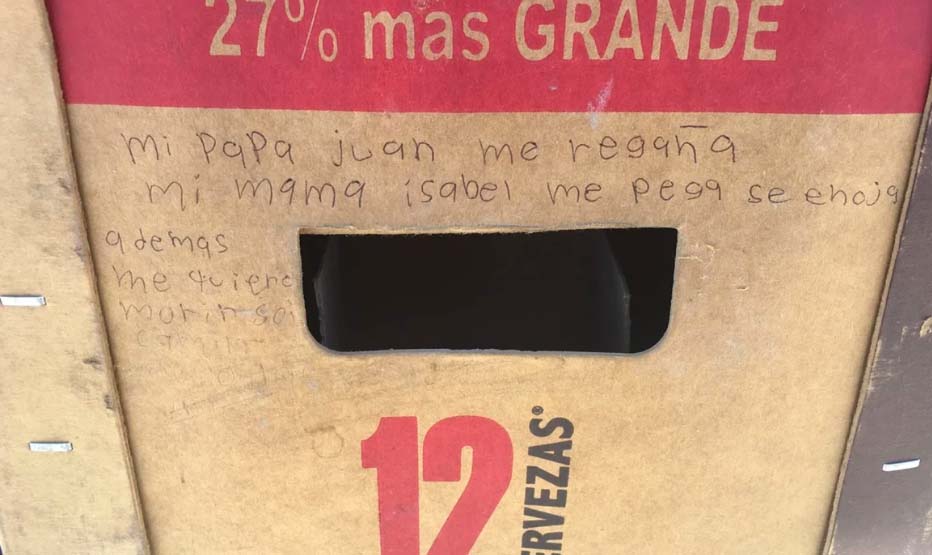 27% mas GRANDE
mi papa juan me regaña
mi mama isabel me pega se enoja
ademas
me quiero
morir soi
12
ERVEZAS